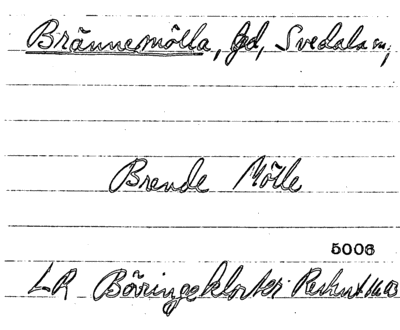 Brännemölla, gd, Svedala sn,
Brende Mölle
5006
LR Böringekloster